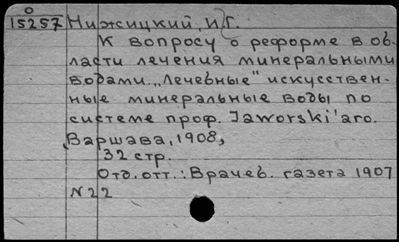 О
15257 Нижицкий, И.Г.
К вопросу о реформе в об-
ласти лечения минеральными
водами. „Лечебные" искусствен-
ные минеральные воды по
системе проф. Jaworski'аго.
Варшава, 1908,
32 стр.
Отд. отт.: Врачеб. газета 1907
N 22